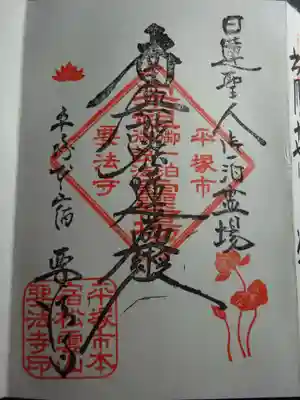 日蓮聖人御一泊霊場
南無妙法蓮華経
平塚本宿
要法寺
平塚市
御一泊霊場
要法寺
平塚市本
宿松雲山
要法寺印